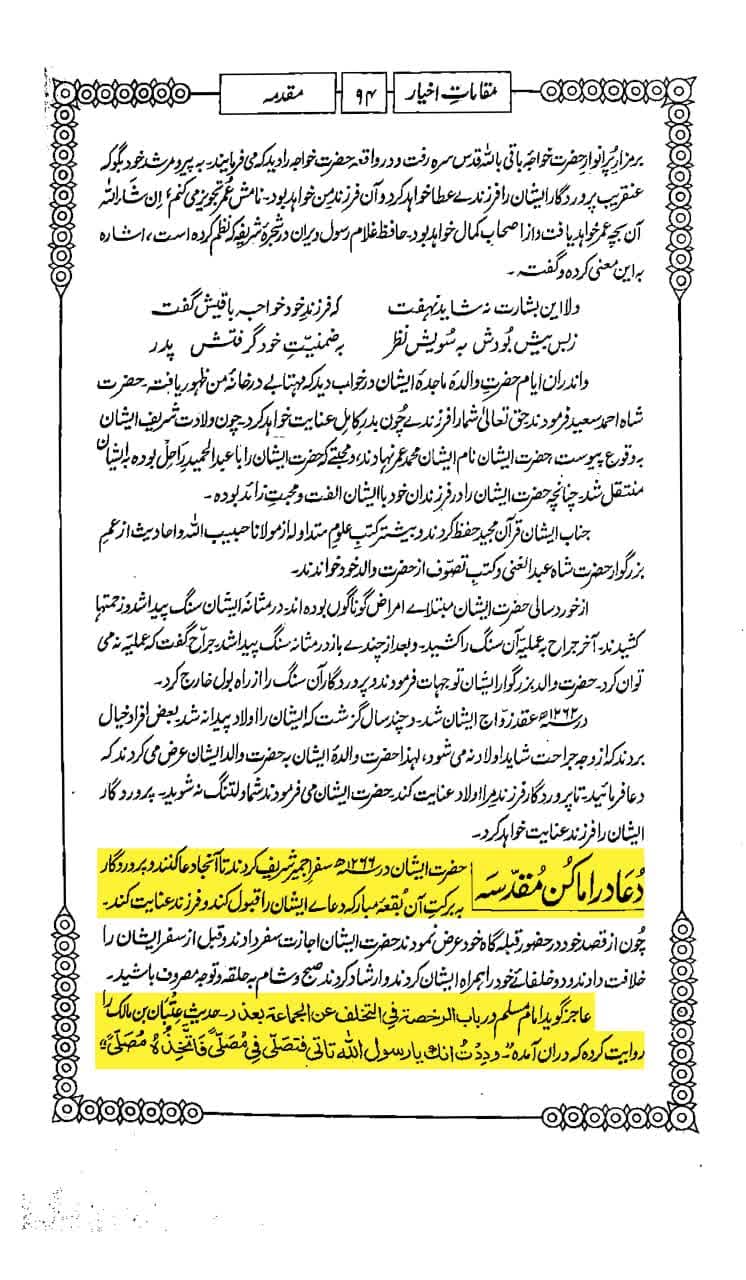 مقاماتِ اخیار ۹۴ مقدمہ
برمزار پُرانوارِ حضرت خواجہ باقی باللہ قدس سرہ رفت و در واقعہ حضرت خواجہ را دید کہ می فرمایند۔ بہ پیر و مرشد خود بگو کہ
عنقریب پروردگار ایشان را فرزندے عطا خواہد کرد و آن فرزندِ من خواہد بود۔ نامش عُمَر تجویز می کنم، اِن شَار اللہ
آن بچہ عمر خواہد یافت و از اصحاب کمال خواہد بود۔ حافظ غلام رسول ویران در شجرۂ شریفہ کہ نظم کردہ است، اشارہ
بہ این معنی کردہ و گفتہ ۔
دلا این بشارت نہ شاید نہفت کہ فرزندِ خود خواجہ باقیش گفت
زبس بیش بُودش بہ سُویش نظر بہ ضمنیّتِ خود گرفتش پدر
و اندران ایام حضرتِ والدۂ ماجدۂ ایشان در خواب دید کہ مہتابے در خانۂ من ظہور یافتہ۔ حضرت
شاہ احمد سعید فرمودند حق تعالیٰ شما را فرزندے چُون بدرِ کامِل عنایت خواہد کرد۔ چون ولادت شریف ایشان
بہ وقوع پیوست، حضرت ایشان نام ایشان محمد عمر نہادند، و محبتے کہ حضرت ایشان را با عبد الحمید راحِل بودہ بایشان
منتقل شد۔ چنانچہ حضرت ایشان را در فرزندان خود با ایشان الفت و محبتِ زائد بودہ ۔
جناب ایشان قرآن مجید حفظ کردند و بیشتر کتبِ علومِ متداولہ از مولانا حبیب اللہ و احادیث از عمِ
بزرگوار حضرت شاہ عبد الغنی و کتبِ تصوّف از حضرت والد خود خواندند۔
از خورد سالی حضرت ایشان مبتلاے امراض گوناگوں بودہ اند۔ در مثانۂ ایشان سنگ پیدا شد و زحمتہا
کشیدند۔ آخر جراح بہ عملیہ آن سنگ را کشید۔ و بعد از چندے باز در مثانہ سنگ پیدا شد۔ جراح گفت کہ عملیہ نہ می
توان کرد۔ حضرت والد بزرگوار ایشان توجہات فرمودند و پروردگار آن سنگ را از راہ بول خارج کرد۔
در ۱۲۶۲ھ عقد زواج ایشان شد۔ و چند سال گزشت کہ ایشان را اولاد پیدا نہ شد۔ بعض افراد خیال
بردند کہ از وجہ جراحت شاید اولاد نہ می شود، لہذا حضرت والدۂ ایشان بہ حضرت والد ایشان عرض می کردند کہ
دعا فرمائید۔ تا پروردگار فرزندِ مرا اولاد عنایت کند۔ حضرت ایشان می فرمودند شما دلتنگ نہ شوید۔ پروردگار
ایشان را فرزند عنایت خواہد کرد۔
دُعا در اماکنِ مُقدّسَہ
حضرت ایشان در ۱۲۶۶ھ سفر اجمیر شریف کردند تا آنجا دعا کنند و پروردگار
بہ برکتِ آن بُقعۂ مبارکہ دعاے ایشان را قبول کند و فرزند عنایت کند۔
چُون از قصد خود در حضورِ قبلہ گاہ خود عرض نمودند حضرت ایشان اجازت سفر دادند و قبل از سفر ایشان را
خلافت دادند و دو خلفائے خود را ہمراہ ایشان کردند و ارشاد کردند صبح و شام بہ حلقہ و توجہ مصروف باشید۔
عاجز گوید امام مسلم در باب الرخصة فی التخلف عن الجماعة بعذر۔ حدیث عِتْبَان بن مالک را
روایت کردہ کہ دران آمدہ " وَدِدْتُ انک یا رسول اللہ تاتی فتصلّی فِی مُصَلّیً فَاَتَّخِذُہٗ مُصَلًّی "